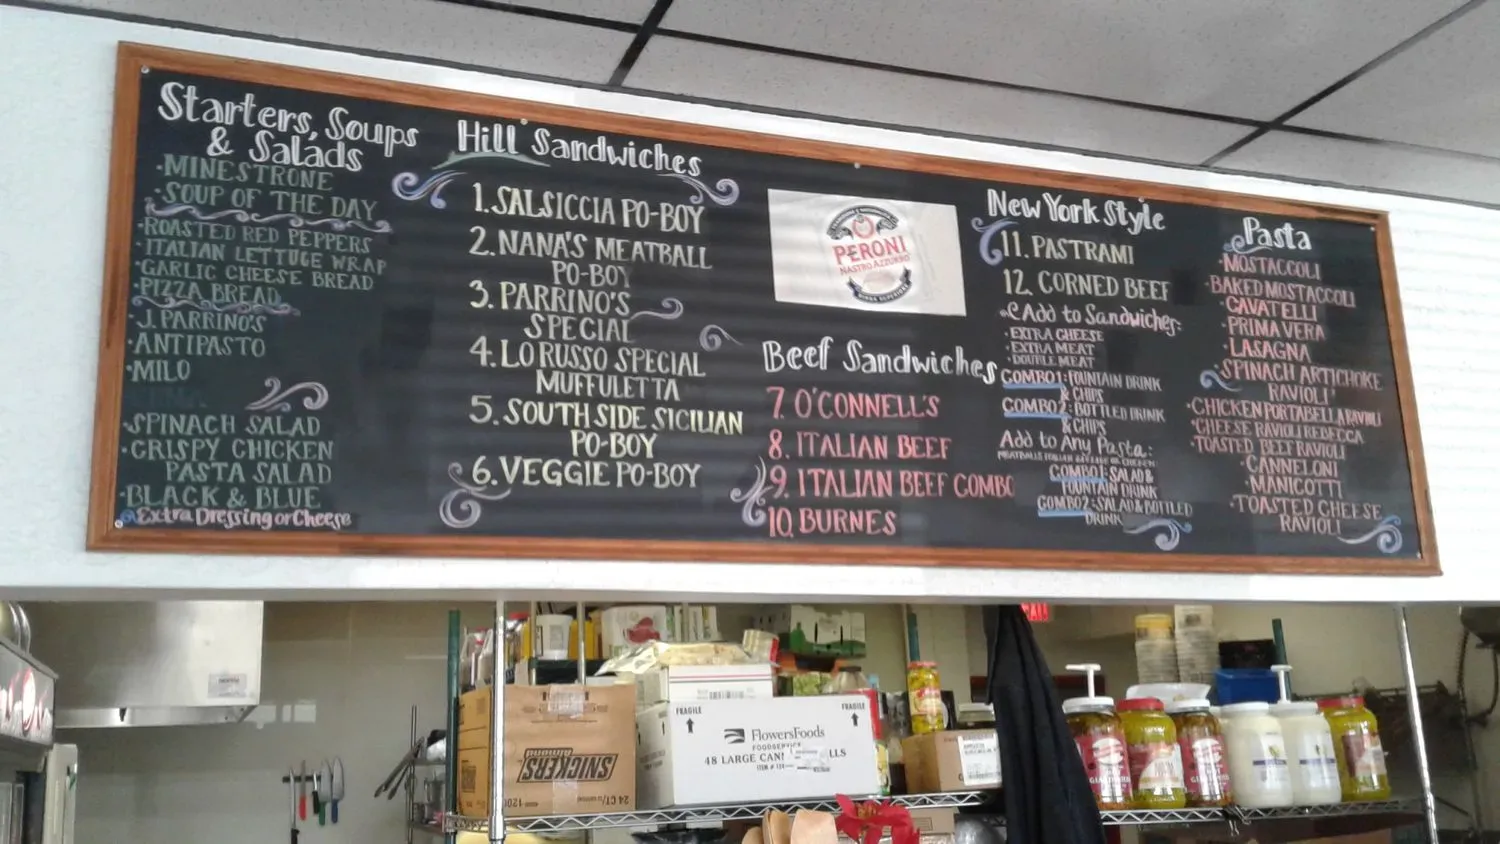 Starters, Soups
& Salads
·MINESTRONE
·SOUP OF THE DAY
·ROASTED RED PEPPERS
·ITALIAN LETTUGE WRAP
·GARLIC CHEESE BREAD
·PIZZA BREAD
·J. PARRINO'S
·ANTIPASTO
·MILO
·SPINACH SALAD
·CRISPY CHICKEN
PASTA SALAD
·BLACK & BLUE
Extra Dressing or Cheese
Hill Sandwiches
1. SALSICCIA PO-BOY
2. NANA'S MEATBALL
PO-BOY
3. PARRINO'S
SPECIAL
4. LO RUSSO SPECIAL
MUFFULETTA
5. SOUTH SIDE SICILIAN
PO-BOY
6. VEGGIE PO-BOY
PERONI
NASTRO AZZURRO
BIRRA SUPERIORE
Beef Sandwiches
7. O'CONNELL'S
8. ITALIAN BEEF
9. ITALIAN BEEF COMBO
10. BURNES
New York Style
11. PASTRAMI
12. CORNED BEEF
Add to Sandwiches:
·EXTRA CHEESE
·EXTRA MEAT
·DOUBLE MEAT
COMBO 1: FOUNTAIN DRINK
& CHIPS
COMBO 2: BOTTLED DRINK
& CHIPS
Add to Any Pasta:
MEATBALLS ITALIAN SAUSAGE OR CHICKEN
COMBO 1: SALAD &
FOUNTAIN DRINK
COMBO 2: SALAD & BOTTLED
DRINK
Pasta
·MOSTACCOLI
·BAKED MOSTACCOLI
·CAVATELLI
·PRIMAVERA
·LASAGNA
·SPINACH ARTICHOKE
RAVIOLI
·CHICKEN PORTABELLA RAVIOLI
·CHEESE RAVIOLI REBECCA
·TOASTED BEEF RAVIOLI
·CANNELONI
·MANICOTTI
·TOASTED CHEESE
RAVIOLI
SNICKERS
Almond
24 CT
FRAGILE
FRAGILE
FlowersFoods
FOODSERVICE
48 LARGE